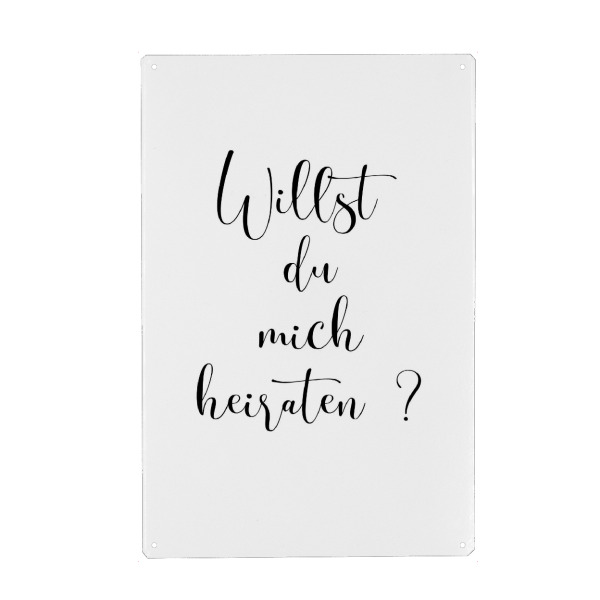 Willst
du
mich
heiraten ?